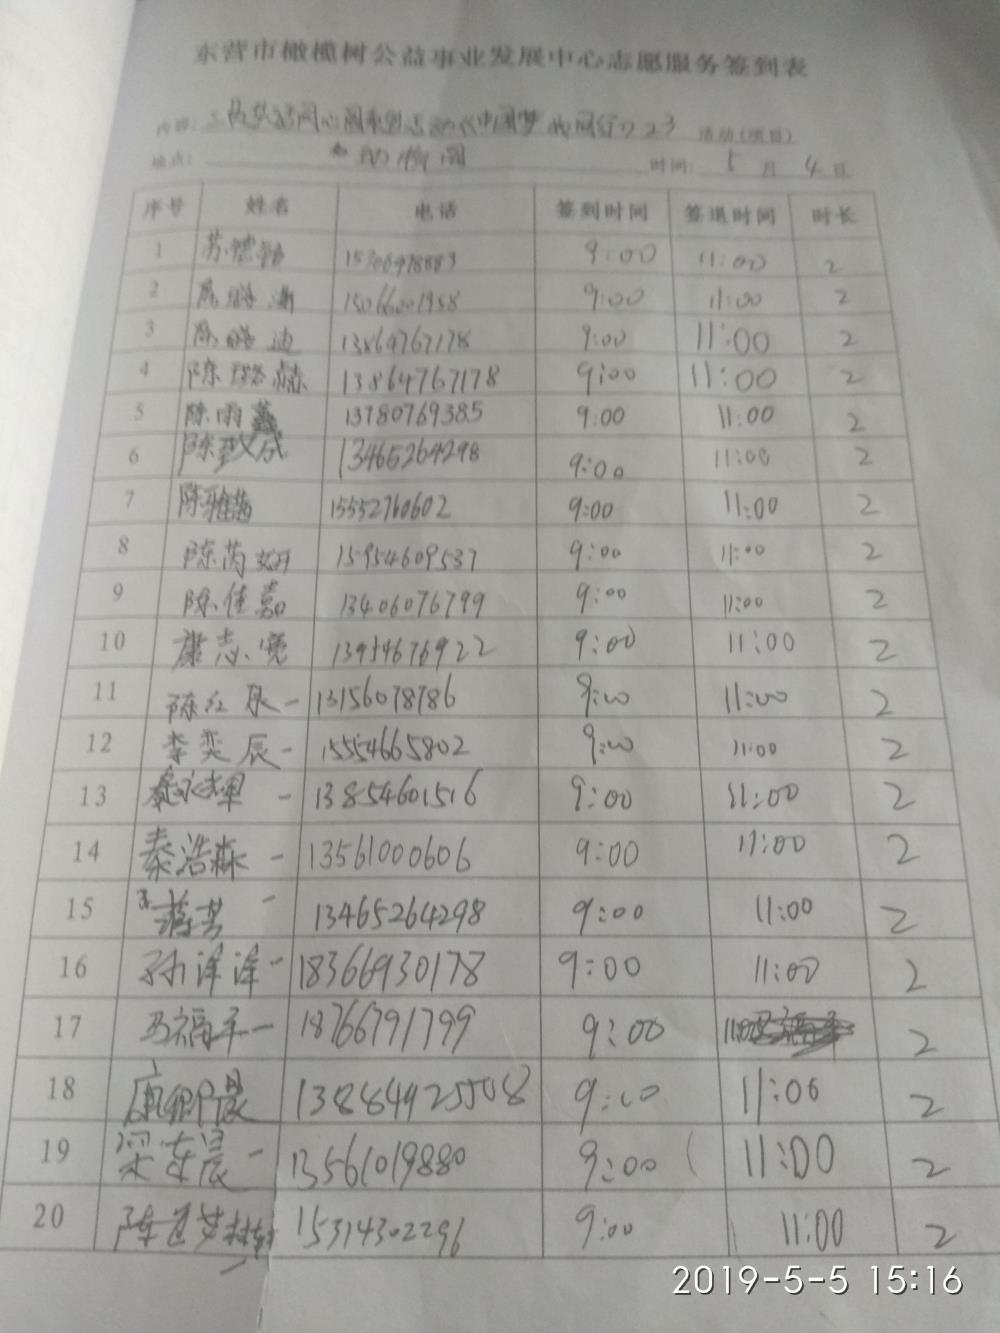 东营市橄榄树公益事业发展中心志愿服务签到表
内容: 活动(项目)
地点: 时间: 5 月 4 日
序号 姓名 电话 签到时间 签退时间 时长
1 9:00 11:00 2
2 15066001958 9:00 11:00 2
3 13864767178 9:00 11:00 2
4 陈 13864767178 9:00 11:00 2
5 陈雨 13780769385 9:00 11:00 2
6 陈 13465264298 9:00 11:00 2
7 陈 15552760602 9:00 11:00 2
8 陈芮妍 15954609537 9:00 11:00 2
9 陈佳嘉 13406076799 9:00 11:00 2
10 康志 13954676922 9:00 11:00 2
11 陈红泉 - 13156078786 9:00 11:00 2
12 李奕辰 - 15554665802 9:00 11:00 2
13 秦 - 13854601516 9:00 11:00 2
14 秦浩森 - 13561000606 9:00 11:00 2
15 - 13465264298 9:00 11:00 2
16 孙 - 18366930178 9:00 11:00 2
17 马福 - 18766791799 9:00 11:00 2
18 9:00 11:00 2
19 梁 - 13561019880 9:00 11:00 2
20 陈 15314302296 9:00 11:00 2
2019-5-5 15:16